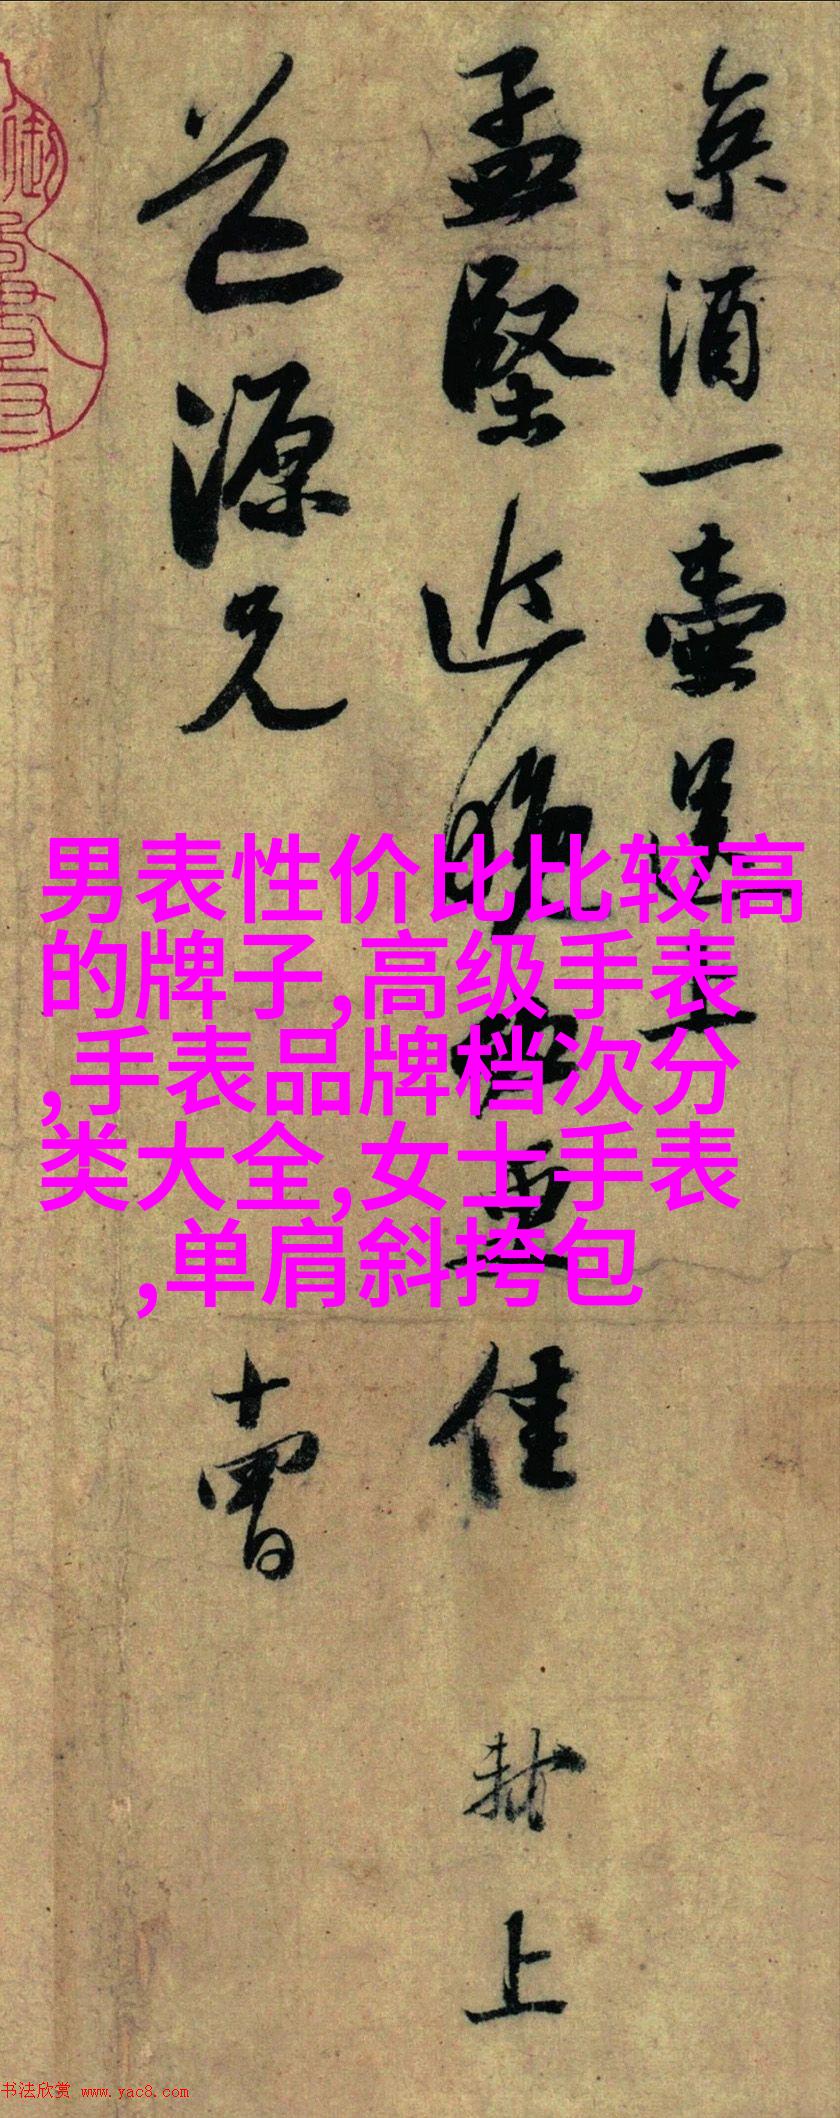 京酒一壶送上
孟坚近晚必更佳
轼上
道源兄
十曾
男表性价比比较高
的牌子,高级手表
,手表品牌档次分
类大全,女士手表
,单肩斜挎包
书法欣赏 www.yac8.com